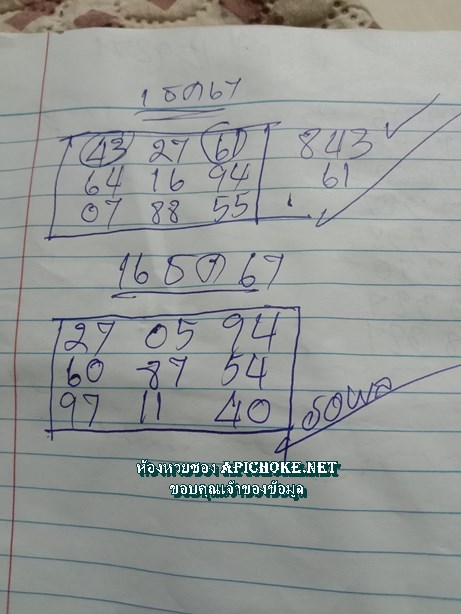 1 ธค 67
43 27 61 843
64 16 94 61
07 88 55
16 ธค 67
27 05 94
60 87 54
97 11 40 รอผล
ห้องหวยซอง APICHOKE.NET
ขอบคุณเจ้าของข้อมูล